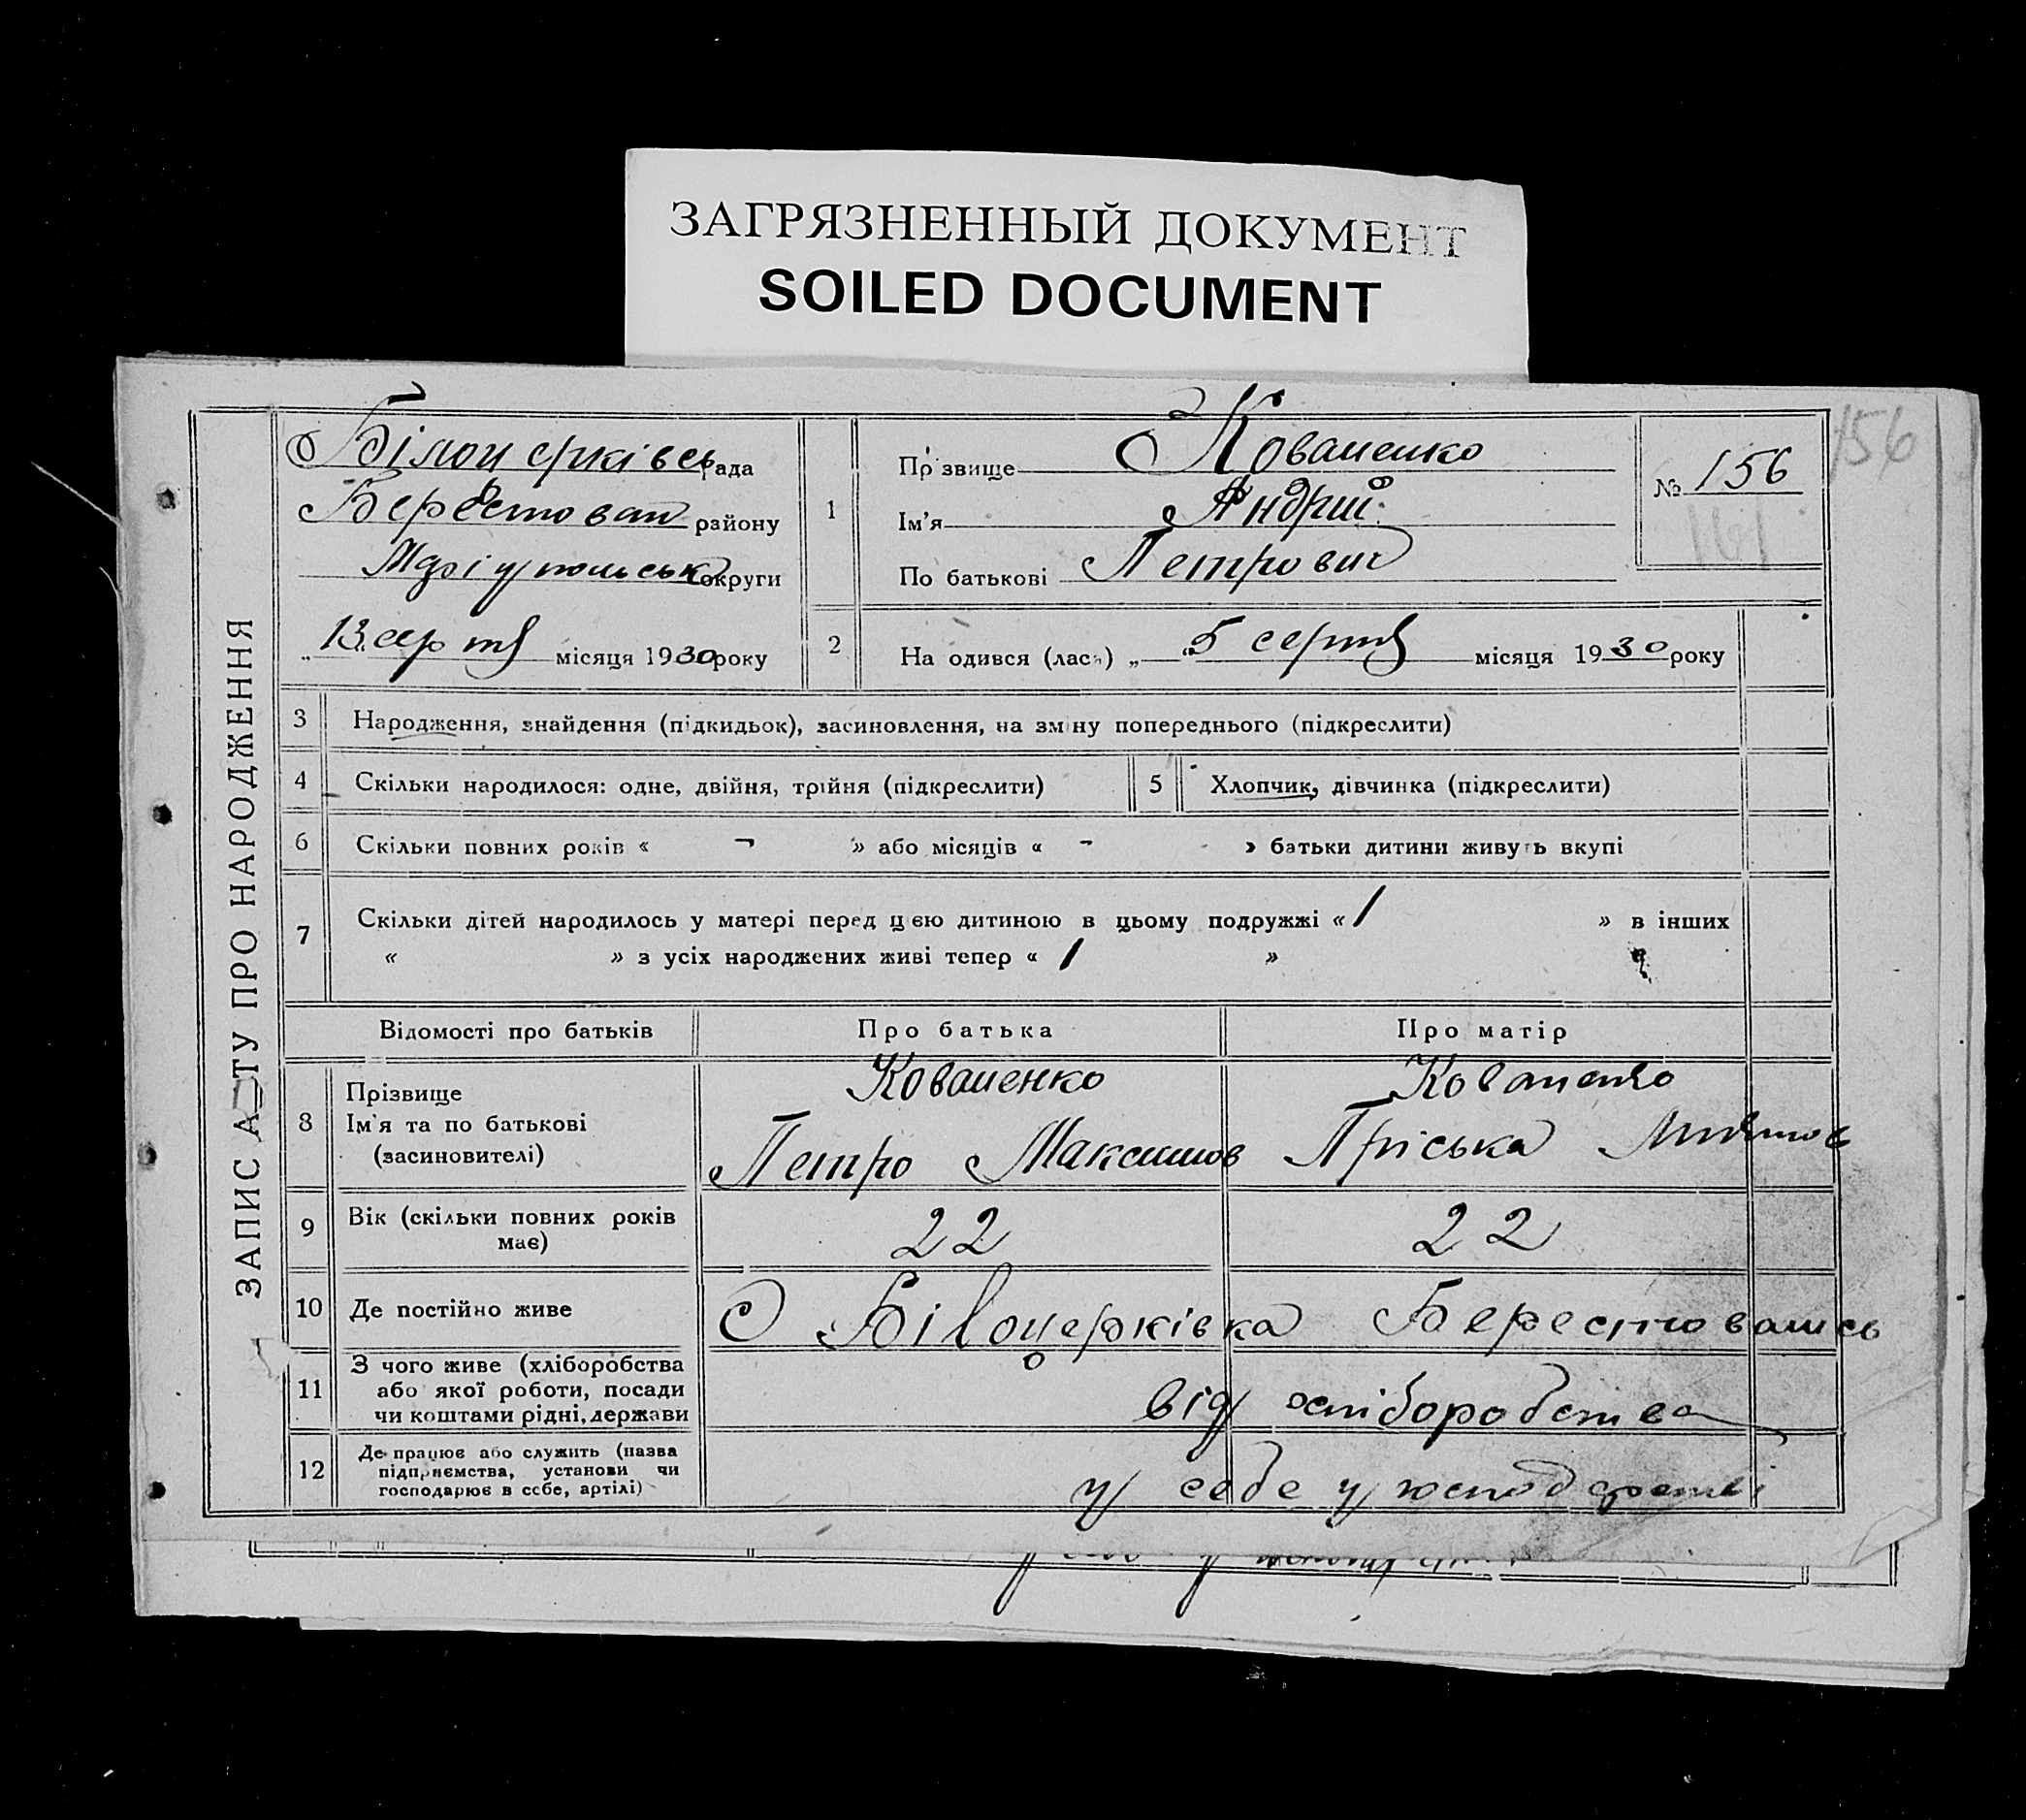 ЗАГРЯЗНЕННЫЙ ДОКУМЕНТ
SOILED DOCUMENT
ЗАПИС АКТУ ПРО НАРОДЖЕННЯ
Білоцерківсь рада
Берестован району
Маріупольськ округи
13 серпня місяця 1930 року
1
Прізвище Коваленко
Ім'я Андрий
По батькові Петрович
№ 156
156
161
2 На одився (лась) „ 5 “ серпня місяця 1930 року
3 Народження, знайдення (підкидьок), засиновлення, на зміну попереднього (підкреслити)
4 Скільки народилося: одне, двійня, трійня (підкреслити)
5 Хлопчик, дівчинка (підкреслити)
6 Скільки повних років « - » або місяців « - » батьки дитини живуть вкупі
7 Скільки дітей народилось у матері перед цією дитиною в цьому подружжі « 1 » в інших
« » з усіх народжених живі тепер « 1 »
Відомості про батьків Про батька Про матір
8 Прізвище
Ім'я та по батькові
(засиновителі)
Коваленко
Петро Максимов
Коваленко
Пріська
9 Вік (скільки повних років
має)
22 22
10 Де постійно живе
С Білоцерківка Берестовансь
11 З чого живе (хліборобства
або якої роботи, посади
чи коштами рідні, держави
від хліборобства
12 Де працює або служить (назва
підприємства, установи чи
господарює в себе, артілі)
у себе у господарстві